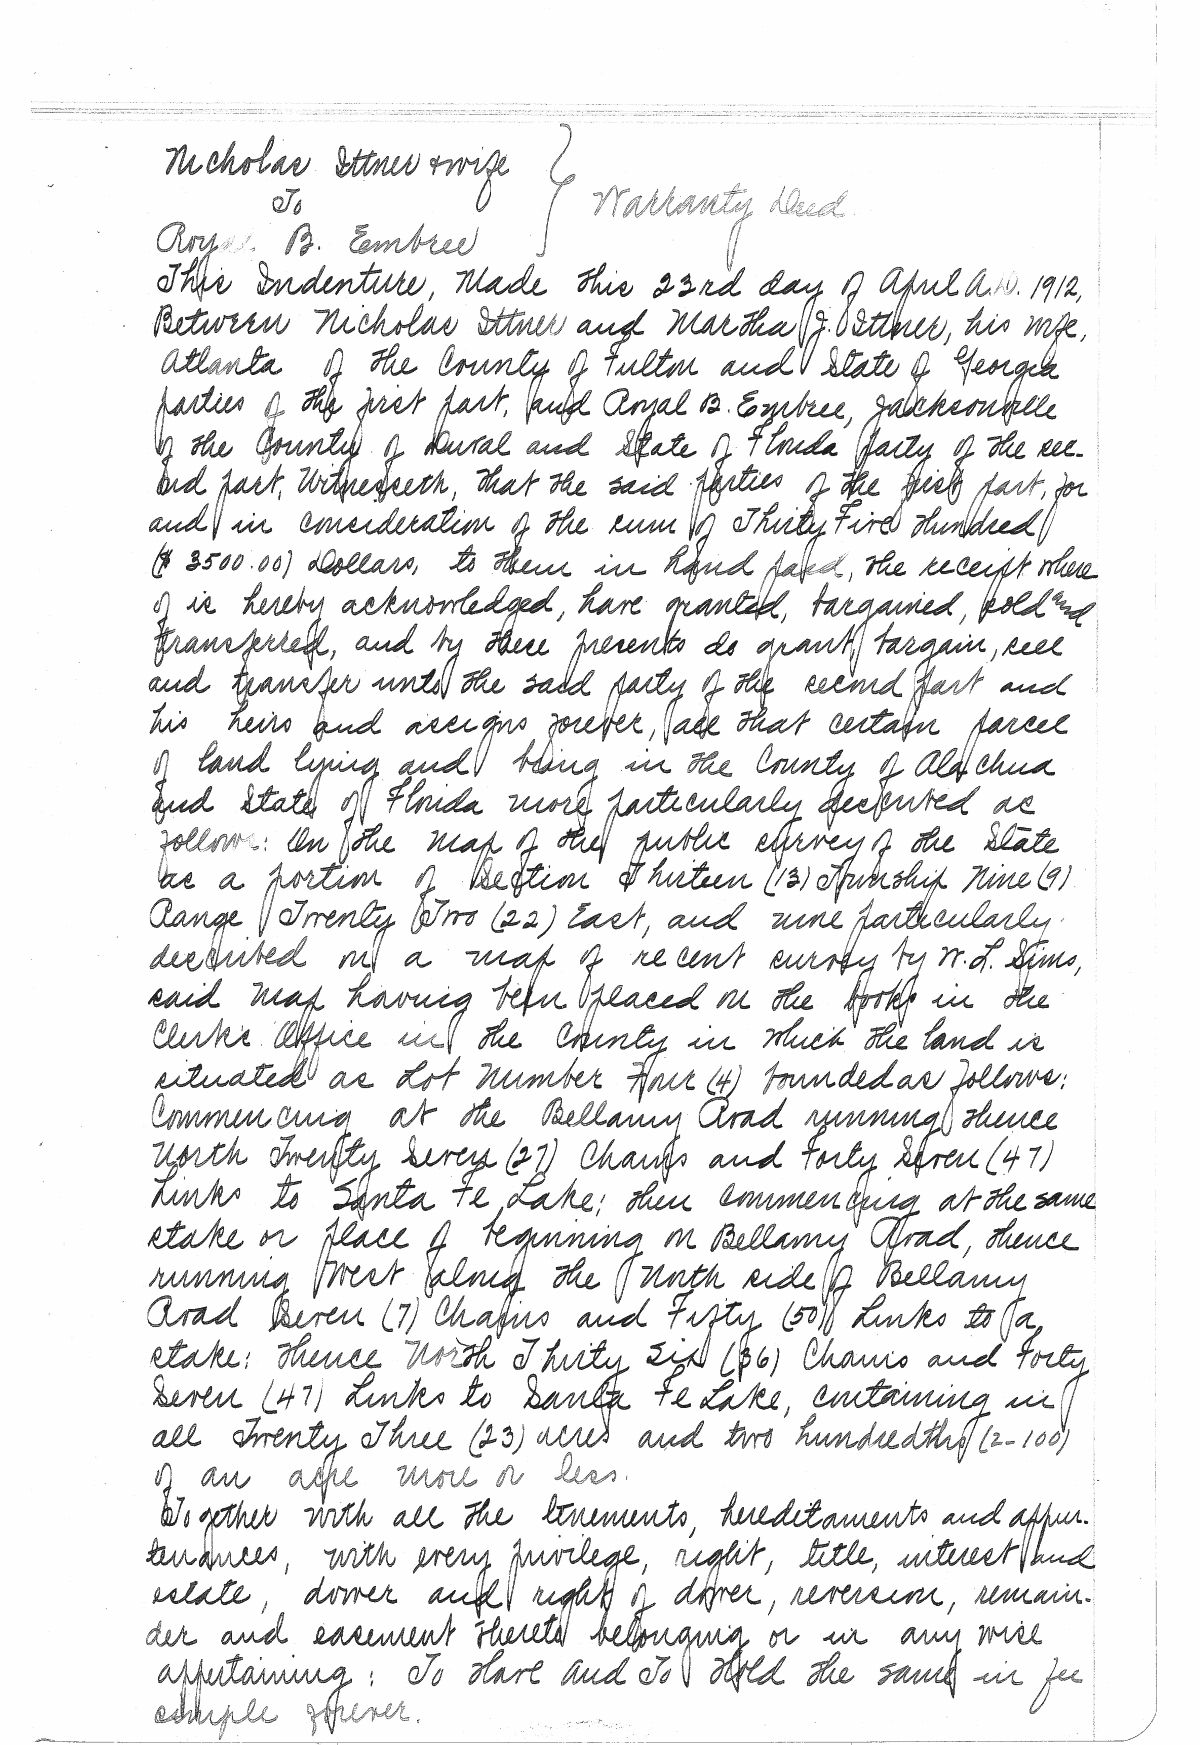 Nicholas Ittner & wife
To
Warranty Deed
Royal B. Embree
This Indenture, Made this 23rd day of April A.D. 1912,
Between Nicholas Ittner and Martha J. Ittner, his wife,
Atlanta of the County of Fulton and State of Georgia
parties of the first part, and Royal B. Embree, Jacksonville
of the County of Duval and State of Florida party of the sec-
ond part, Witnesseth, that the said parties of the first part, for
and in consideration of the sum of Thirty Five Hundred
($3500.00) Dollars, to them in hand paid, the receipt where
of is hereby acknowledged, have granted, bargained, sold and
transferred, and by these presents do grant, bargain, sell
and transfer unto the said party of the second part and
his heirs and assigns forever, all that certain parcel
of land lying and being in the County of Alachua
and State of Florida more particularly described as
follows: On the map of the public survey of the State
as a portion of Section Thirteen (13) Township Nine (9)
Range Twenty Two (22) East, and more particularly
described on a map of recent survey by W. L. Sims,
said map having been placed on the books in the
Clerks Office in the County in which the land is
situated as Lot Number Four (4) bounded as follows:
Commencing at the Bellamy Road running thence
North Twenty Seven (27) Chains and Forty Seven (47)
Links to Santa Fe Lake; then commencing at the same
stake or place of beginning on Bellamy Road, thence
running West along the North side of Bellamy
Road Seven (7) Chains and Fifty (50) Links to a
stake: thence North Thirty Six (36) Chains and Forty
Seven (47) Links to Santa Fe Lake, containing in
all Twenty Three (23) acres and two hundredths (2-100)
of an acre more or less.
Together with all the tenements, hereditaments and appur-
tenances, with every privilege, right, title, interest and
estate, dower and right of dower, reversion, remain-
der and easement thereto belonging or in any wise
appertaining: To Have and To Hold the same in fee
simple forever.